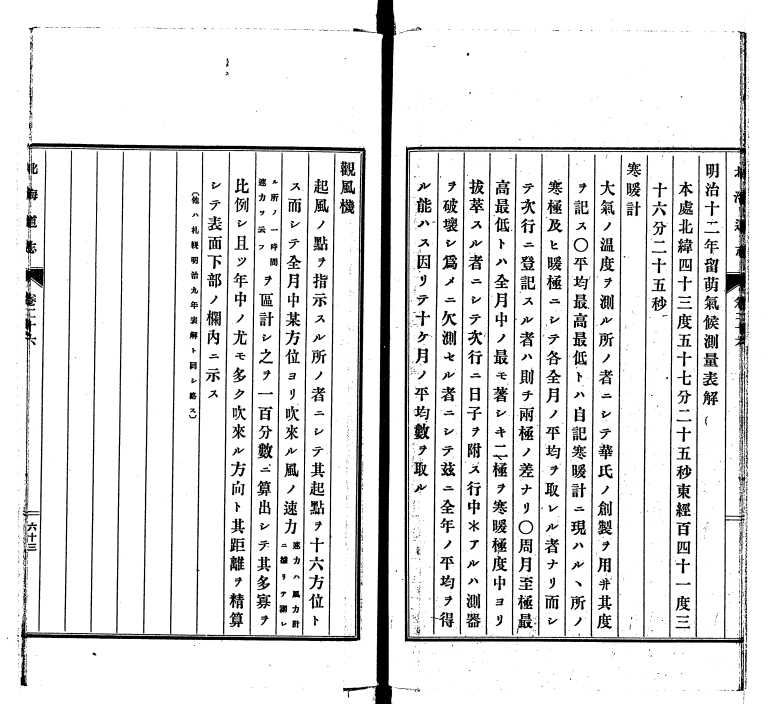 明治十二年留萌氣候測量表解
本處北緯四十三度五十七分二十五秒東經百四十一度三
十六分二十五秒
寒暖計
大氣ノ温度ヲ測ル所ノ者ニシテ華氏ノ創製ヲ用井其度
ヲ記ス〇平均最高最低トハ自記寒暖計ニ現ハルヽ所ノ
寒極及ヒ暖極ニシテ各全月ノ平均ヲ取レル者ナリ而シ
テ次行ニ登記スル者ハ則チ兩極ノ差ナリ〇周月至極最
高最低トハ全月中ノ最モ著シキ二極ヲ寒暖極度中ヨリ
拔萃スル者ニシテ次行ニ日子ヲ附ス行中＊アルハ測器
ヲ破壞シ爲メニ欠測セル者ニシテ玆ニ全年ノ平均ヲ得
ル能ハス因リテ十ケ月ノ平均數ヲ取ル
觀風機
起風ノ點ヲ指示スル所ノ者ニシテ其起點ヲ十六方位ト
ス而シテ全月中某方位ヨリ吹來ル風ノ速力速力ハ風力計ニ據リテ測レ
ル所ノ一時間速力ヲ示フヲ區計シ之ヲ一百分數ニ算出シテ其多寡ヲ
比例シ且ツ年中ノ尤モ多ク吹來ル方向ト其距離ヲ精算
シテ表面下部ノ欄內ニ示ス
（他ハ札幌明治九年表解ト同シ略ス）
北海道志
卷二十六
六十三